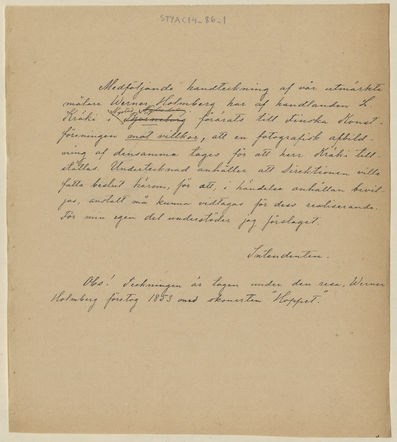 STYAC14-86-1
Medföljande handteckning af vår utmärkte
målare Werner Holmberg har af handlanden L.
Krähi i förärats till Finska Konst-
föreningen mot villkor, att en fotografisk afbild-
ning af densamma tages för att herr Krähi till-
ställas. Undertecknad anhåller att direktionen ville
fatta beslut härom, för att, i händelse anhållan bevil-
jas, anstalt må kunna vidtagas för dess realiserande.
För min egen del understöder jag förslaget.
Intendenten.
Obs! Teckningen är tagen under den resa, Werner
Holmberg företog 1853 med skonerten "Hoppet".